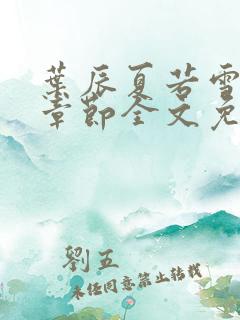 葉辰夏若雪
章節全文免
劉五
未經同意禁止轉載